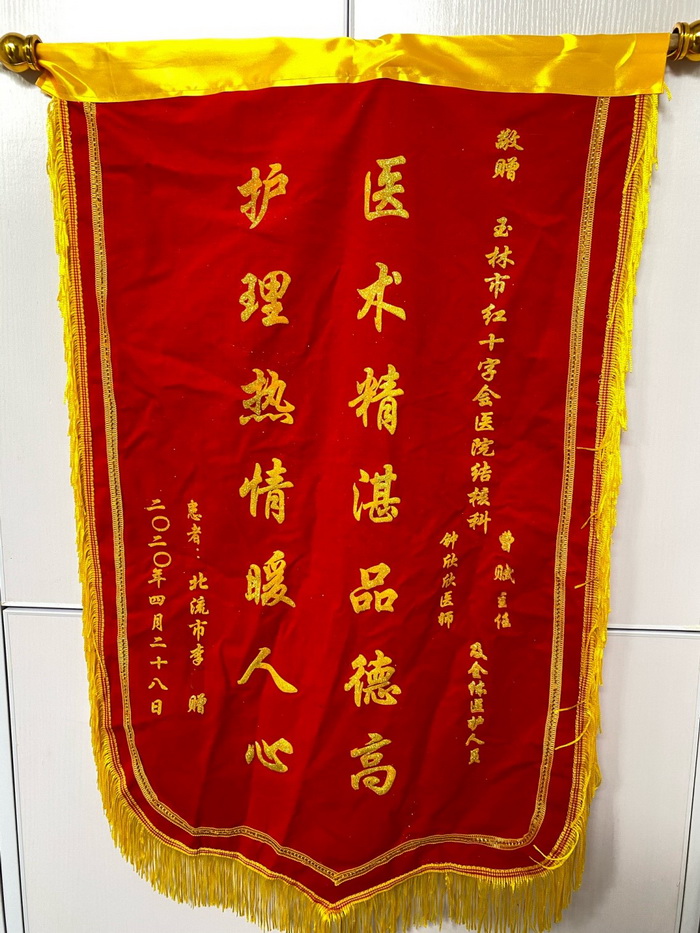 敬赠 玉林市红十字会医院结核科
曾赋主任
钟欣欣医师
及全体医护人员
医术精湛品德高
护理热情暖人心
患者：北流市李 赠
二〇二〇年四月二十八日